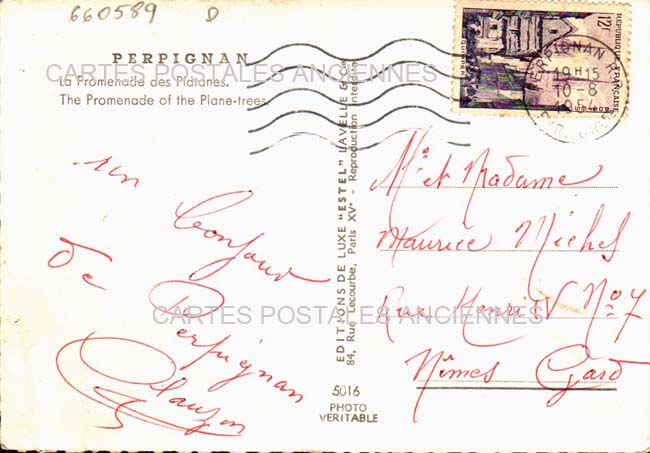 660589 D
PERPIGNAN
La Promenade des Platanes.
The Promenade of the Plane-trees.
CARTES POSTALES ANCIENNES
un bonjour
de Perpignan
EDITIONS DE LUXE "ESTEL" LAVELLE & Cie
84, Rue Lecourbe, Paris XVe - Reproduction interdite
5016
PHOTO
VERITABLE
12F
REPUBLIQUE FRANÇAISE
QUIMPER
PERPIGNAN
19H15
10-8
1954
Mr et Madame
Maurice Michel
Rue Henri IV No 7
Nîmes Gard
CARTES POSTALES ANCIENNES